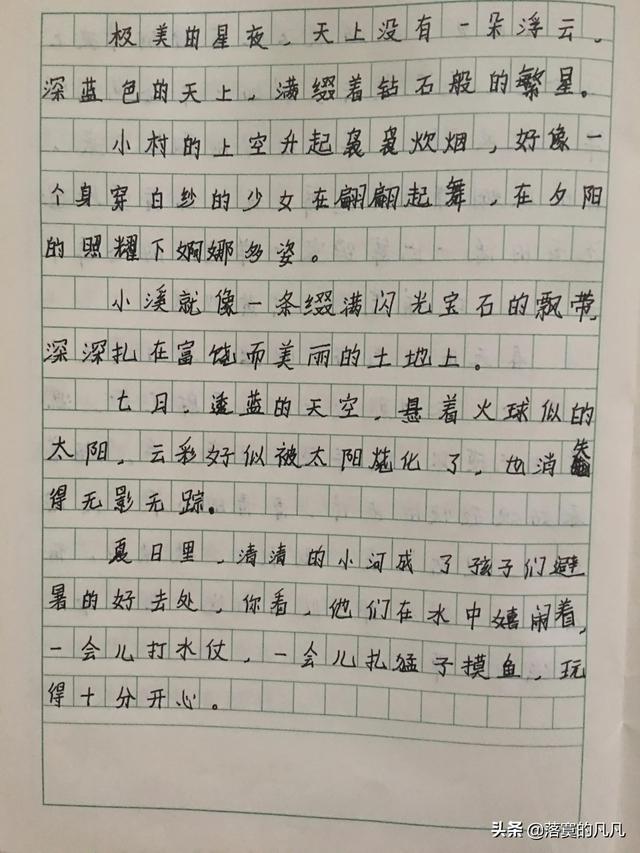 极美的星夜，天上没有一朵浮云。
深蓝色的天上，满缀着钻石般的繁星。
小村的上空升起袅袅炊烟，好像一
个身穿白纱的少女在翩翩起舞，在夕阳
的照耀下婀娜多姿。
小溪就像一条缀满闪光宝石的飘带，
深深扎在富饶而美丽的土地上。
七月，透蓝的天空，悬着火球似的
太阳，云彩好似被太阳烧化了，也消失
得无影无踪。
夏日里，清清的小河成了孩子们避
暑的好去处，你看，他们在水中嬉闹着，
一会儿打水仗，一会儿扎猛子摸鱼，玩
得十分开心。
头条 @落寞的凡凡